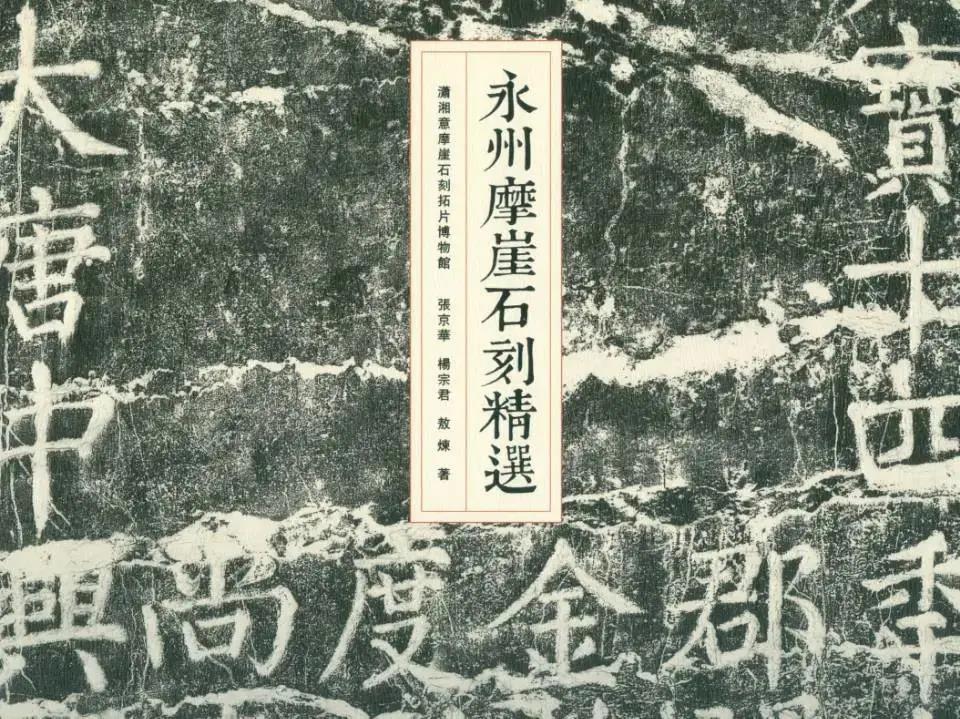 永州摩崖石刻精選
瀟湘意摩崖石刻拓片博物館 張京華 楊宗君 敖煉 著
大唐中興
尚
度
金
郡
寶十四秊